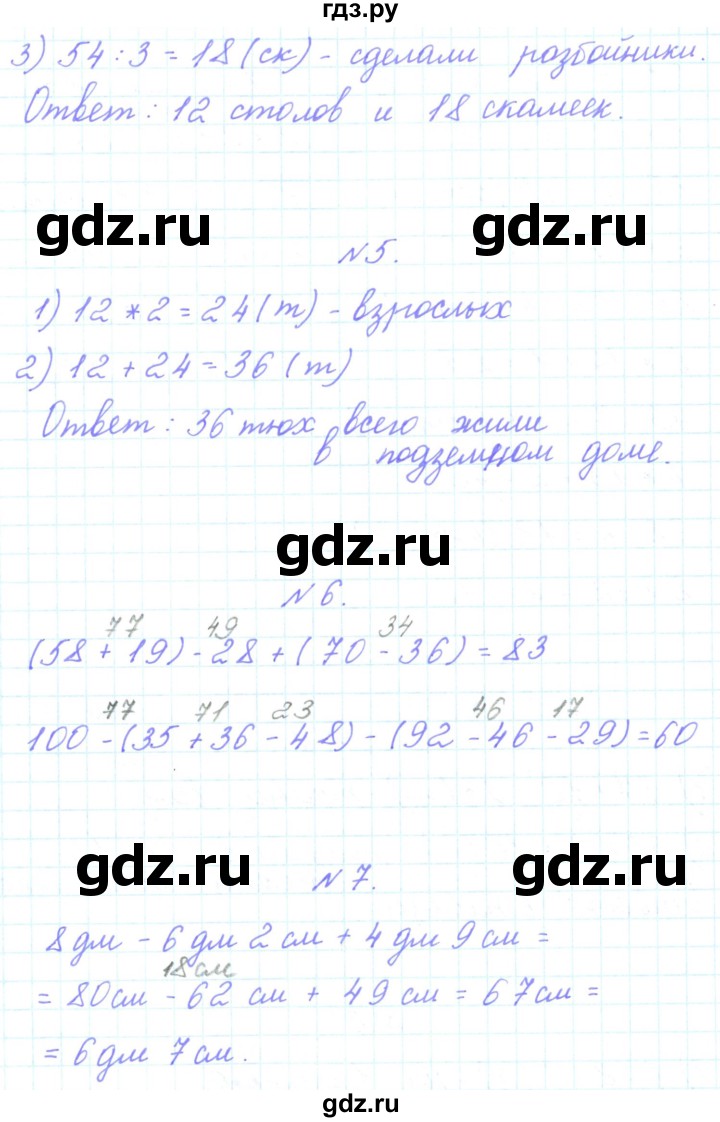 гдз.ру
3) 54 : 3 = 18 (ск) - сделали розбойники.
Ответ: 12 столов и 18 скамеек.
gdz.ru gdz.ru
№5.
1) 12 * 2 = 24 (т) - взрослых
2) 12 + 24 = 36 (т)
Ответ: 36 тюх всего жили
в подземном доме.
gdz.ru
№6.
77 49 34
(58 + 19) - 28 + (70 - 36) = 83
77 71 23 46 17
100 - (35 + 36 - 48) - (92 - 46 - 29) = 60
gdz.ru gdz.ru
№7.
8 дм - 6 дм 2 см + 4 дм 9 см =
18 см
= 80 см - 62 см + 49 см = 67 см =
= 6 дм 7 см.
gdz.ru